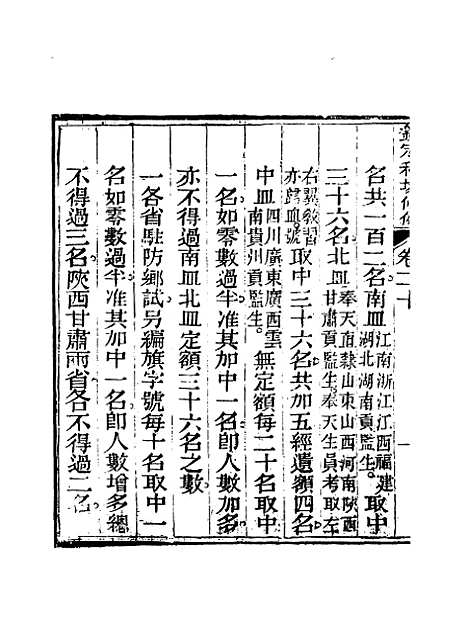 欽定科場條例 卷二十 一
名共一百二名南皿江南浙江江西福建湖北湖南貢監生。取中
三十六名北皿奉天直隸山東山西河南陝西甘肅貢監生奉天生員考取左
右翼教習亦歸皿號取中三十六名共加五經遺額四名
中皿四川廣東廣西雲南貴州貢監生。無定額每二十名取中
一名如零數過半准其加中一名卽人數加多
亦不得過南皿北皿定額三十六名之數
一各省駐防鄉試另編旗字號每十名取中一
名如零數過半准其加中一名卽人數增多總
不得過三名陝西甘肅兩省各不得過二名